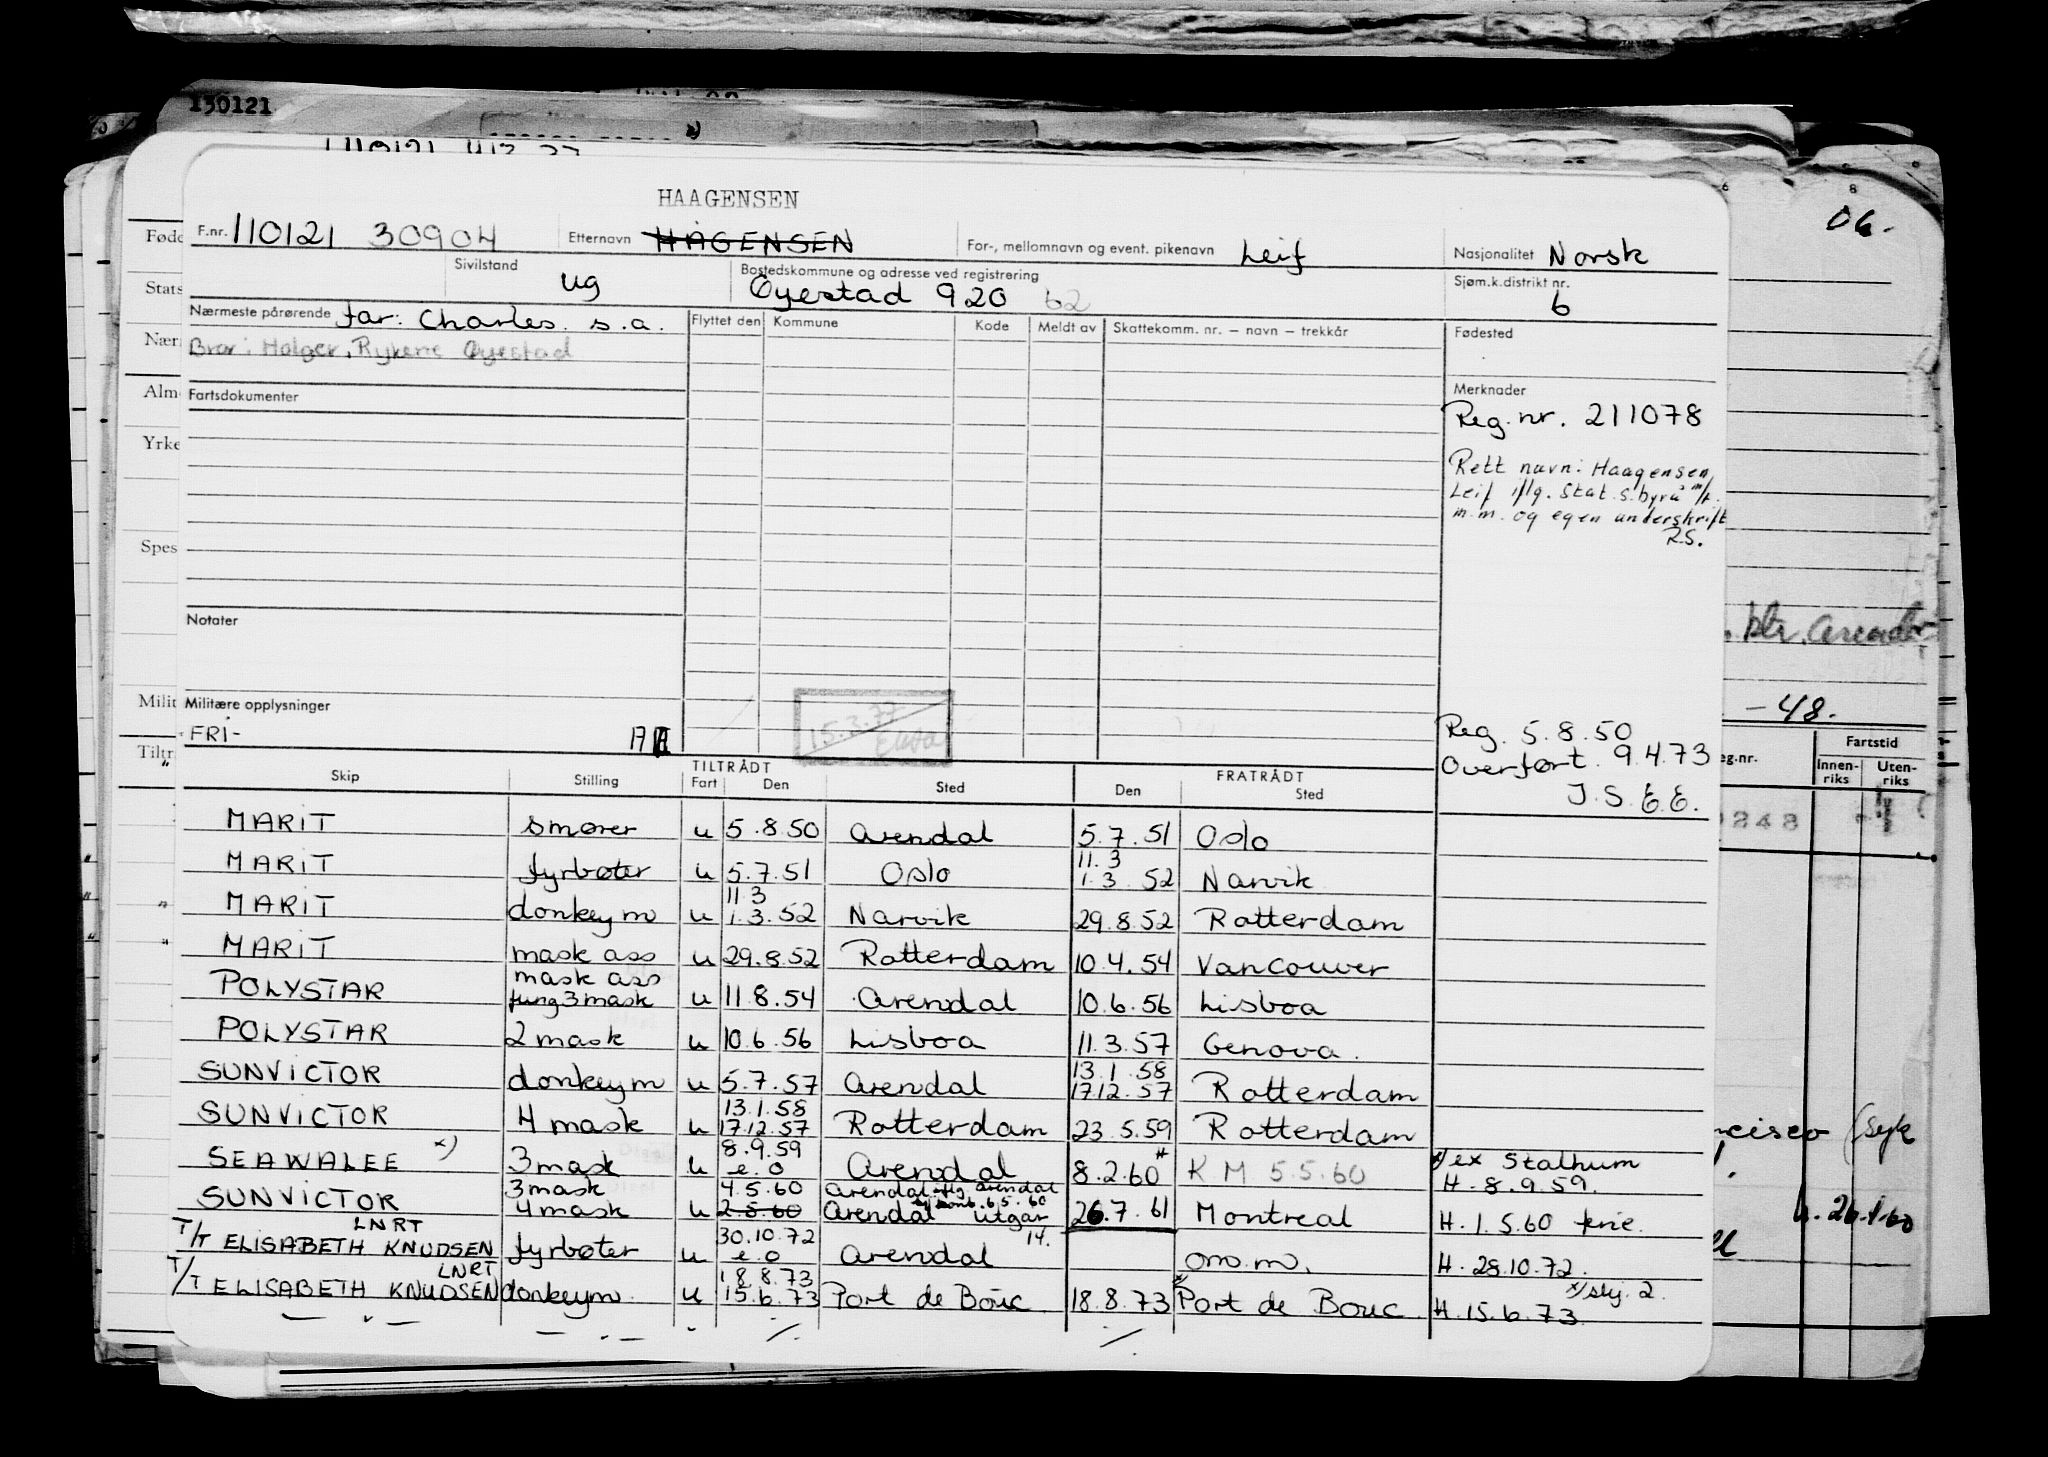 150121
HAAGENSEN
06.
F.nr. 110121 30904 Etternavn HAGENSEN For-, mellomnavn og event. pikenavn Leif Nasjonalitet Norsk
Sivilstand ug Bostedskommune og adresse ved registrering Øyestad 920 62 Sjøm.k.distrikt nr. 6
Nærmeste pårørende far: Charles. s.a. Flyttet den Kommune Kode Meldt av Skattekomm. nr. – navn – trekkår Fødested
Bror: Holger, Rykene Øyestad
Fartsdokumenter Merknader
Reg. nr. 211078
Rett navn: Haagensen,
Leif iflg. Stat. s. byrå
m.m. og egen underskrift
R.S.
Notater
Militære opplysninger
FRI-
15.3.77
Reg. 5.8.50
Overført. 9.4.73
J.S. E.E.
Skip Stilling TILTRÅDT Fart Den Sted FRATRÅDT Den Sted
MARIT smører u 5.8.50 Arendal 5.7.51 Oslo
MARIT fyrbøter u 5.7.51 Oslo 11.3 1.3.52 Narvik
MARIT donkeym u 11.3 1.3.52 Narvik 29.8.52 Rotterdam
MARIT mask ass u 29.8.52 Rotterdam 10.4.54 Vancouver
POLYSTAR mask ass fung 3 mask u 11.8.54 Arendal 10.6.56 Lisboa
POLYSTAR 2 mask u 10.6.56 Lisboa 11.3.57 Genova.
SUNVICTOR donkeym u 5.7.57 Arendal 13.1.58 17.12.57 Rotterdam
SUNVICTOR 4 mask u 13.1.58 17.12.57 Rotterdam 23.5.59 Rotterdam
SEAWALEE x) 3 mask u 8.9.59 e.o Arendal 8.2.60 K M 5.5.60 x) ex Stalhum H. 8.9.59.
SUNVICTOR 3 mask 4 mask u 4.5.60 2.5.60 Arendal Arendal utgår 26.7.61 Montreal H. 1.5.60 ferie.
T/T ELISABETH KNUDSEN LNRT fyrbøter u 30.10.72 e.o Arendal om.m. H. 28.10.72.
T/T ELISABETH KNUDSEN LNRT donkeym. u 18.8.73 15.6.73 Port de Bouc 18.8.73 Port de Bouc H. 15.6.73 x) skj. 2.
Føde
Stats
Nær
Alm
Yrke
Spes
Milit
Tiltr
-48.
Fartstid
Innen-riks Uten-riks